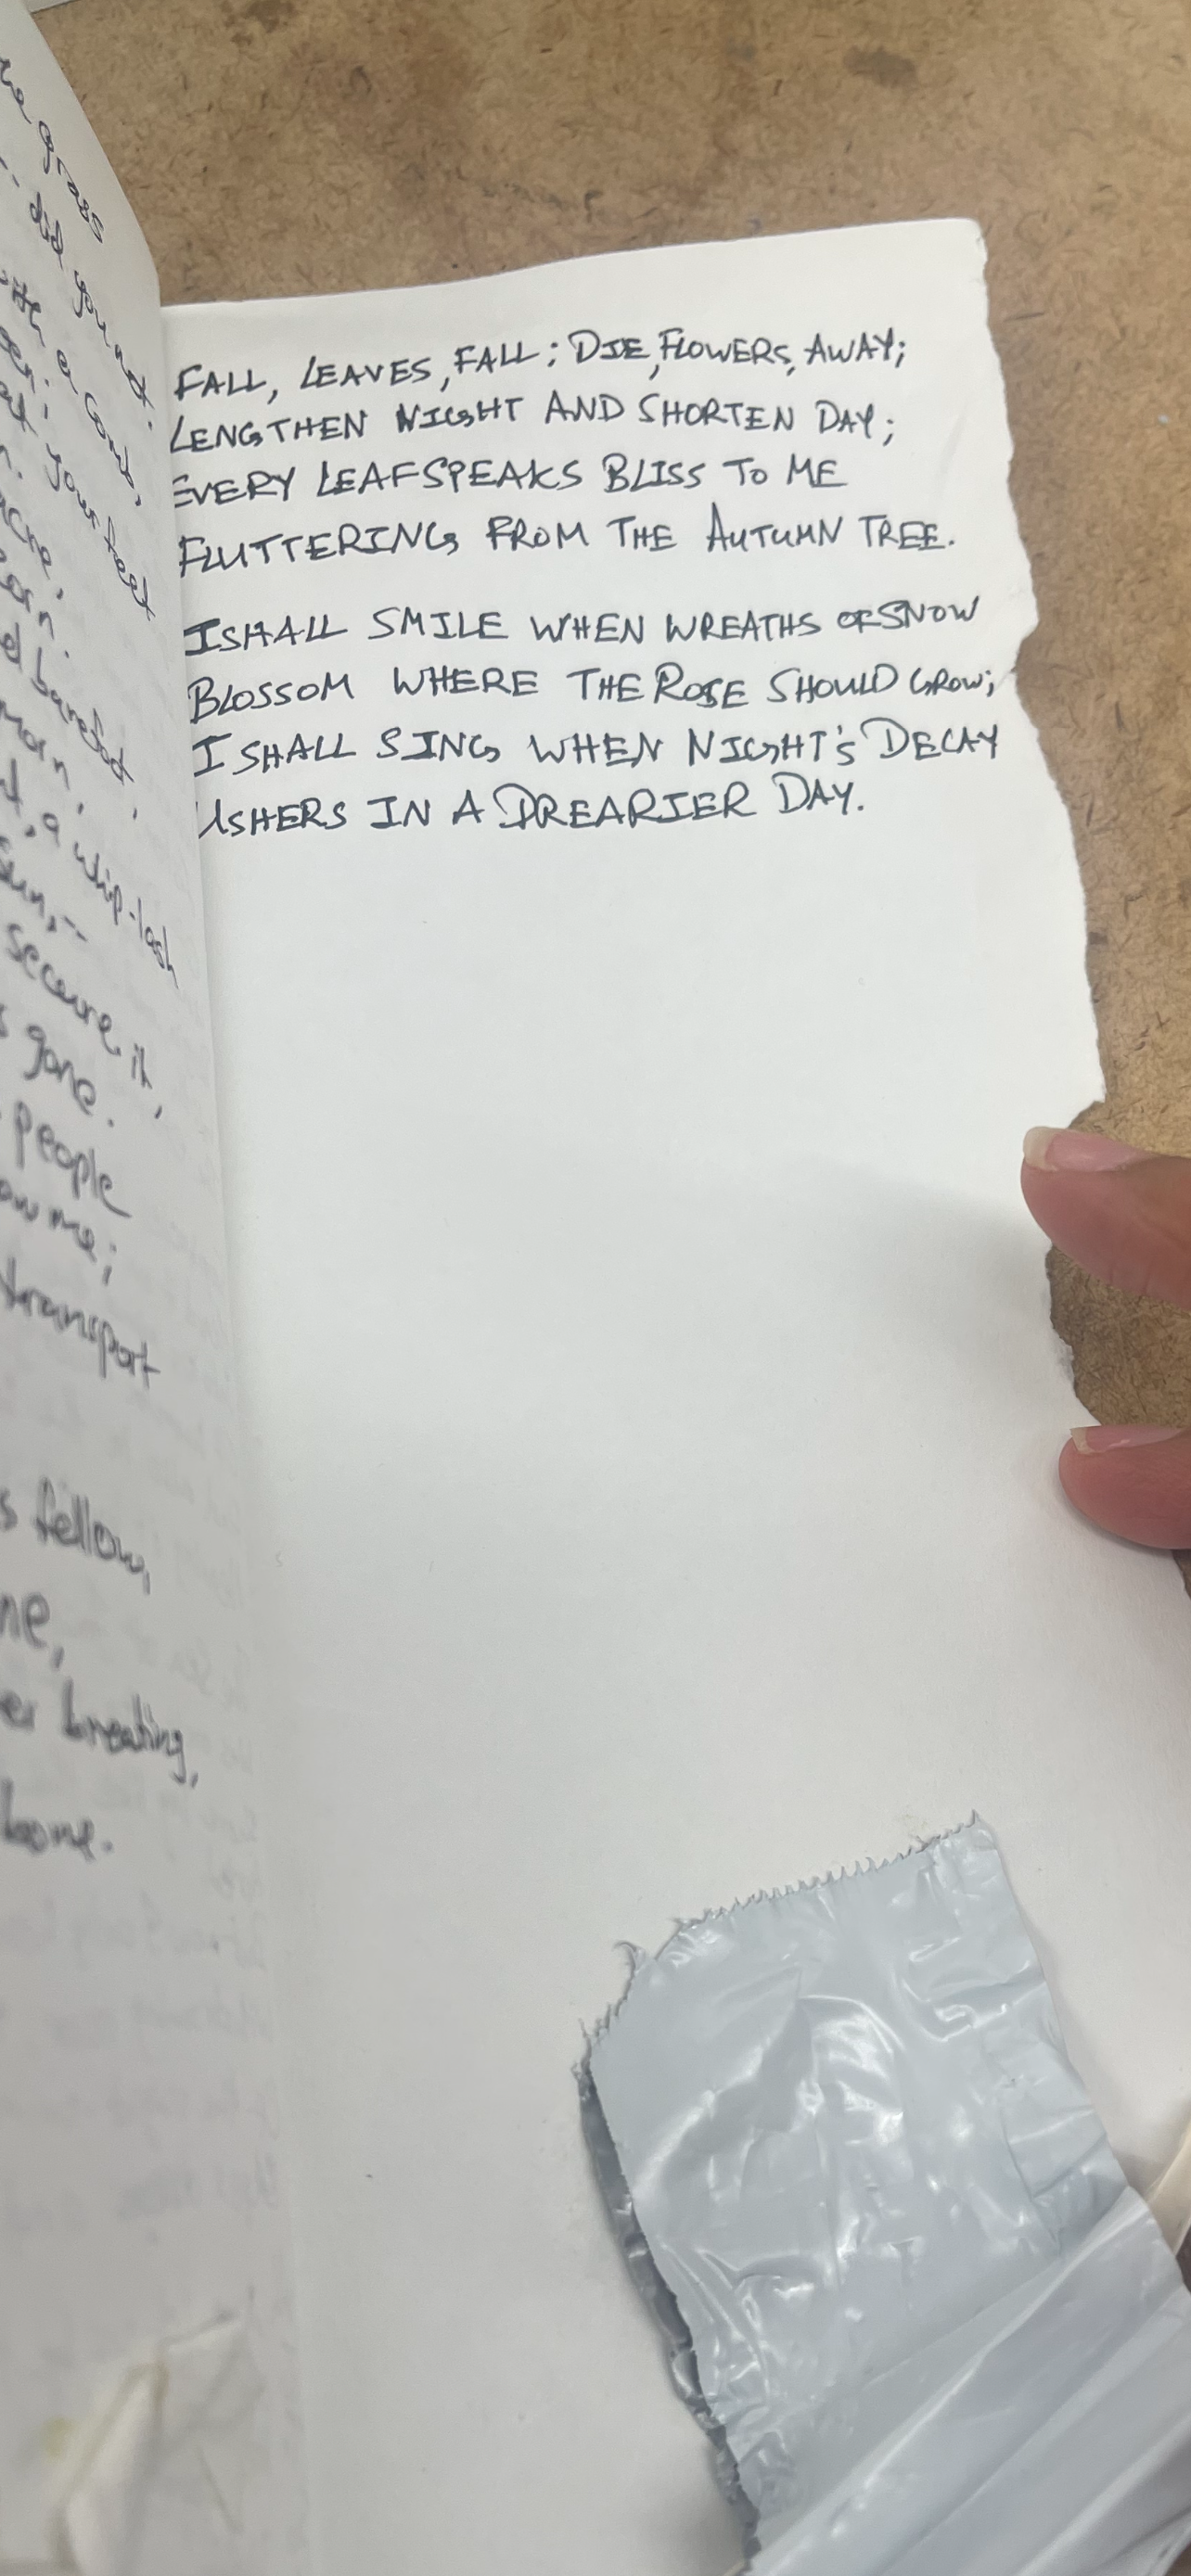 the grass
did you not
with a comb,
your feet
acre,
barefoot,
a whip-lash
sun,--
secure it,
gone.
people
me;
transport
fellow,
breathing,
bone.
FALL, LEAVES, FALL; DIE, FLOWERS, AWAY;
LENGTHEN NIGHT AND SHORTEN DAY;
EVERY LEAF SPEAKS BLISS TO ME
FLUTTERING FROM THE AUTUMN TREE.
I SHALL SMILE WHEN WREATHS OF SNOW
BLOSSOM WHERE THE ROSE SHOULD GROW;
I SHALL SING WHEN NIGHT'S DECAY
USHERS IN A DREARIER DAY.